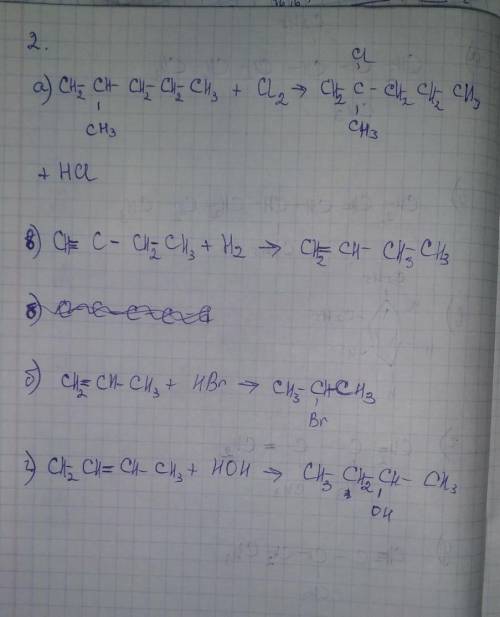 2.
Cl
а) CH2-CH-CH2-CH2-CH3 + Cl2 → CH2-C-CH2-CH2-CH3
CH3 CH3
+ HCl
в) CH≡C-CH2-CH3 + H2 → CH2=CH-CH3-CH3
б) CH2=CH-CH3 + HBr → CH3-CH-CH3
Br
г) CH2-CH=CH-CH3 + HOH → CH3-CH2-CH-CH3
OH